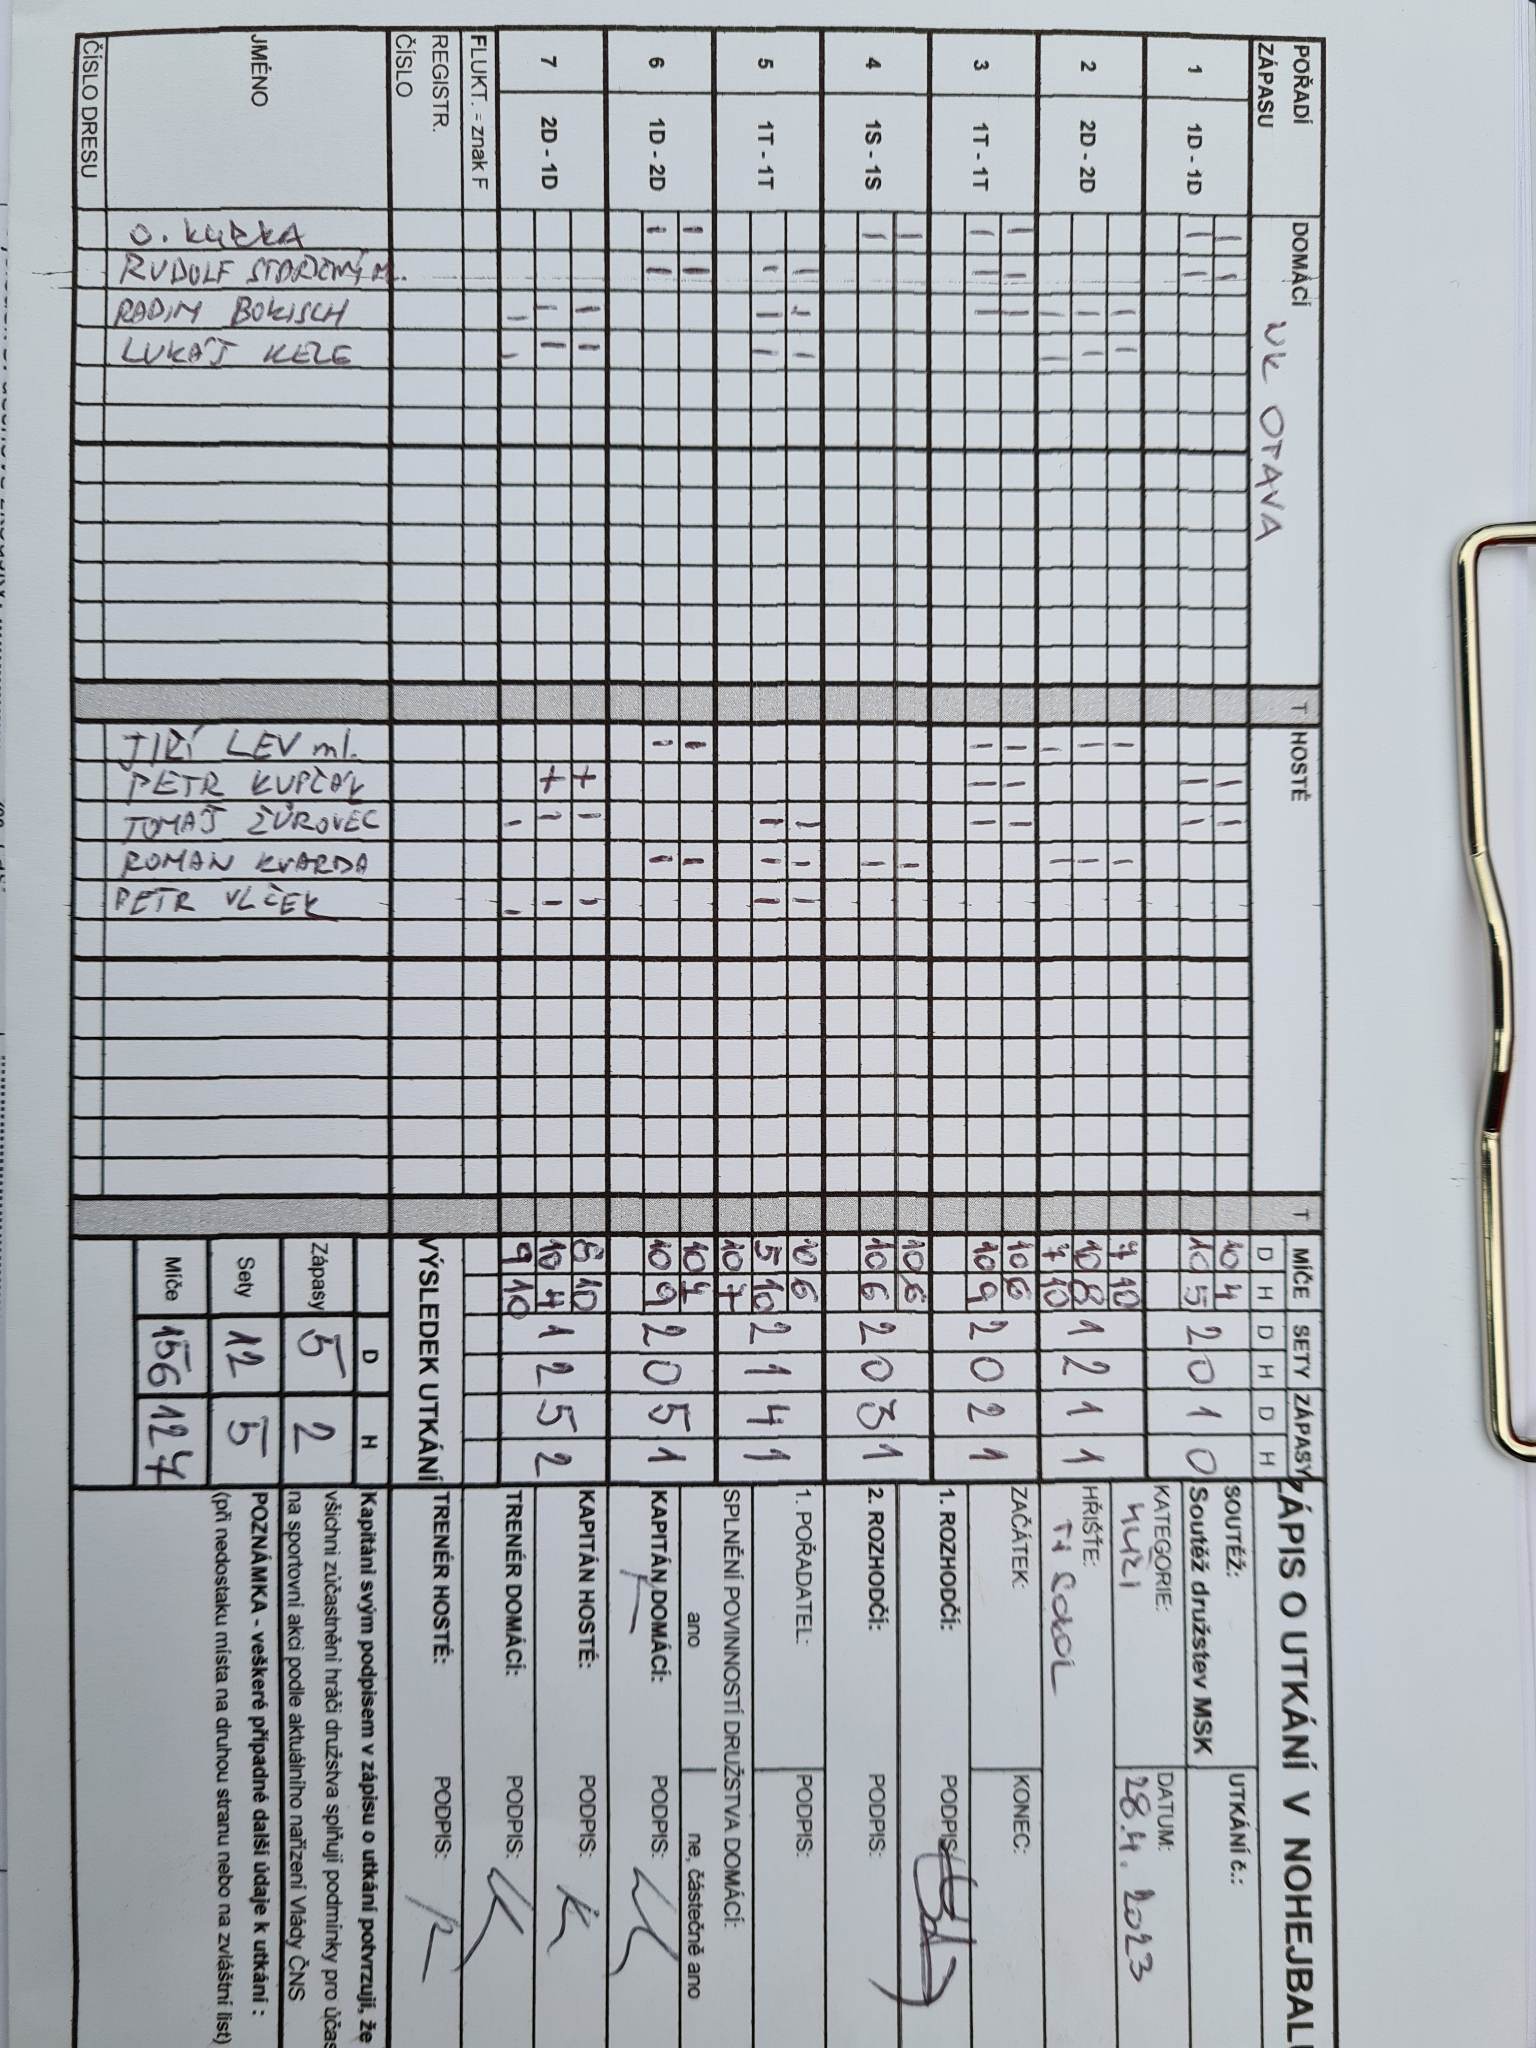 ZÁPIS O UTKÁNÍ V NOHEJBALU
SOUTĚŽ:
Soutěž družstev MSK
UTKÁNÍ č.:
KATEGORIE:
MUŽI
DATUM:
28.4.2023
HŘIŠTĚ:
ZAČÁTEK:
KONEC:
1. ROZHODČÍ:
PODPIS:
2. ROZHODČÍ:
PODPIS:
1. POŘADATEL:
PODPIS:
SPLNĚNÍ POVINNOSTÍ DRUŽSTVA DOMÁCÍ:
ano
ne, částečně ano
KAPITÁN DOMÁCÍ:
PODPIS:
KAPITÁN HOSTÉ:
PODPIS:
TRENÉR DOMÁCÍ:
PODPIS:
TRENÉR HOSTÉ:
PODPIS:
Kapitáni svým podpisem v zápisu o utkání potvrzují, že
všichni zúčastnění hráči družstva splňují podmínky pro účas
na sportovní akci podle aktuálního nařízení Vlády ČNS
POZNÁMKA - veškeré případné další údaje k utkání :
(při nedostatku místa na druhou stranu nebo na zvláštní list)
POŘADÍ ZÁPASU
DOMÁCÍ NK OTAVA
T
HOSTÉ
T
MÍČE SETY ZÁPASY
D H D H D H
1 1D - 1D
10 4
10 5 2 0 1 0
2 2D - 2D
7 10
10 8 1 2 1 1
7 10
3 1T - 1T
10 6
10 9 2 0 2 1
4 1S - 1S
10 6
10 6 2 0 3 1
5 1T - 1T
10 6
5 10 2 1 4 1
10 7
6 1D - 2D
10 7
10 9 2 0 5 1
7 2D - 1D
8 10
10 4 1 2 5 2
9 10
FLUKT. = znak F
REGISTR. ČÍSLO
JMÉNO
ČÍSLO DRESU
O. KUČKA
RUDOLF
RADIM BOKISCH
LUKÁŠ KELE
JIŘÍ LEV ml.
PETR KUPČÁK
TOMÁŠ ŽŮROVEC
ROMAN KVARDA
PETR VLČEK
VÝSLEDEK UTKÁNÍ
D H
Zápasy 5 2
Sety 12 5
Míče 156 127